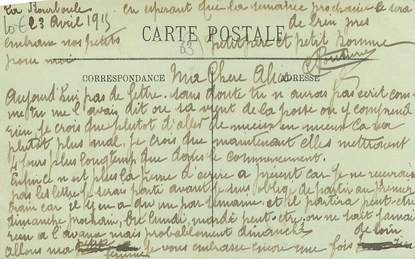 La Bourboule en esperant que la semaine prochaine le sera
le 23 Avril 1915 de bien pres
embrasse nos petits
pour moi
CARTE POSTALE
petit pere et petit homme
CORRESPONDANCE
ADRESSE
Ma Chere Alice
Aujourd'hui pas de lettre. sans doute tu n auras pas ecrit comme
tu me l'avais dit ou sa vient de la poste on y comprend
rien je crois que plutot d'aler de mieux en mieux la va
plutot plus mal. je crois que maintenant elles mettront
4 jours plus longtemp que dans le commencement.
Enfin ce n est plus la peine d ecrire a present car je ne recevrais
pas les lettre je serais parti avant je suis obligé de partir au premier
train car il y en a du un par semaine. et je partirai peut etre
dimanche prochain, ou lundi, mardi peut etre, on ne sait jamais
rien a l'avance mais probablement dimanche
allons ma petite femme je vous embrasse encore une fois de loin